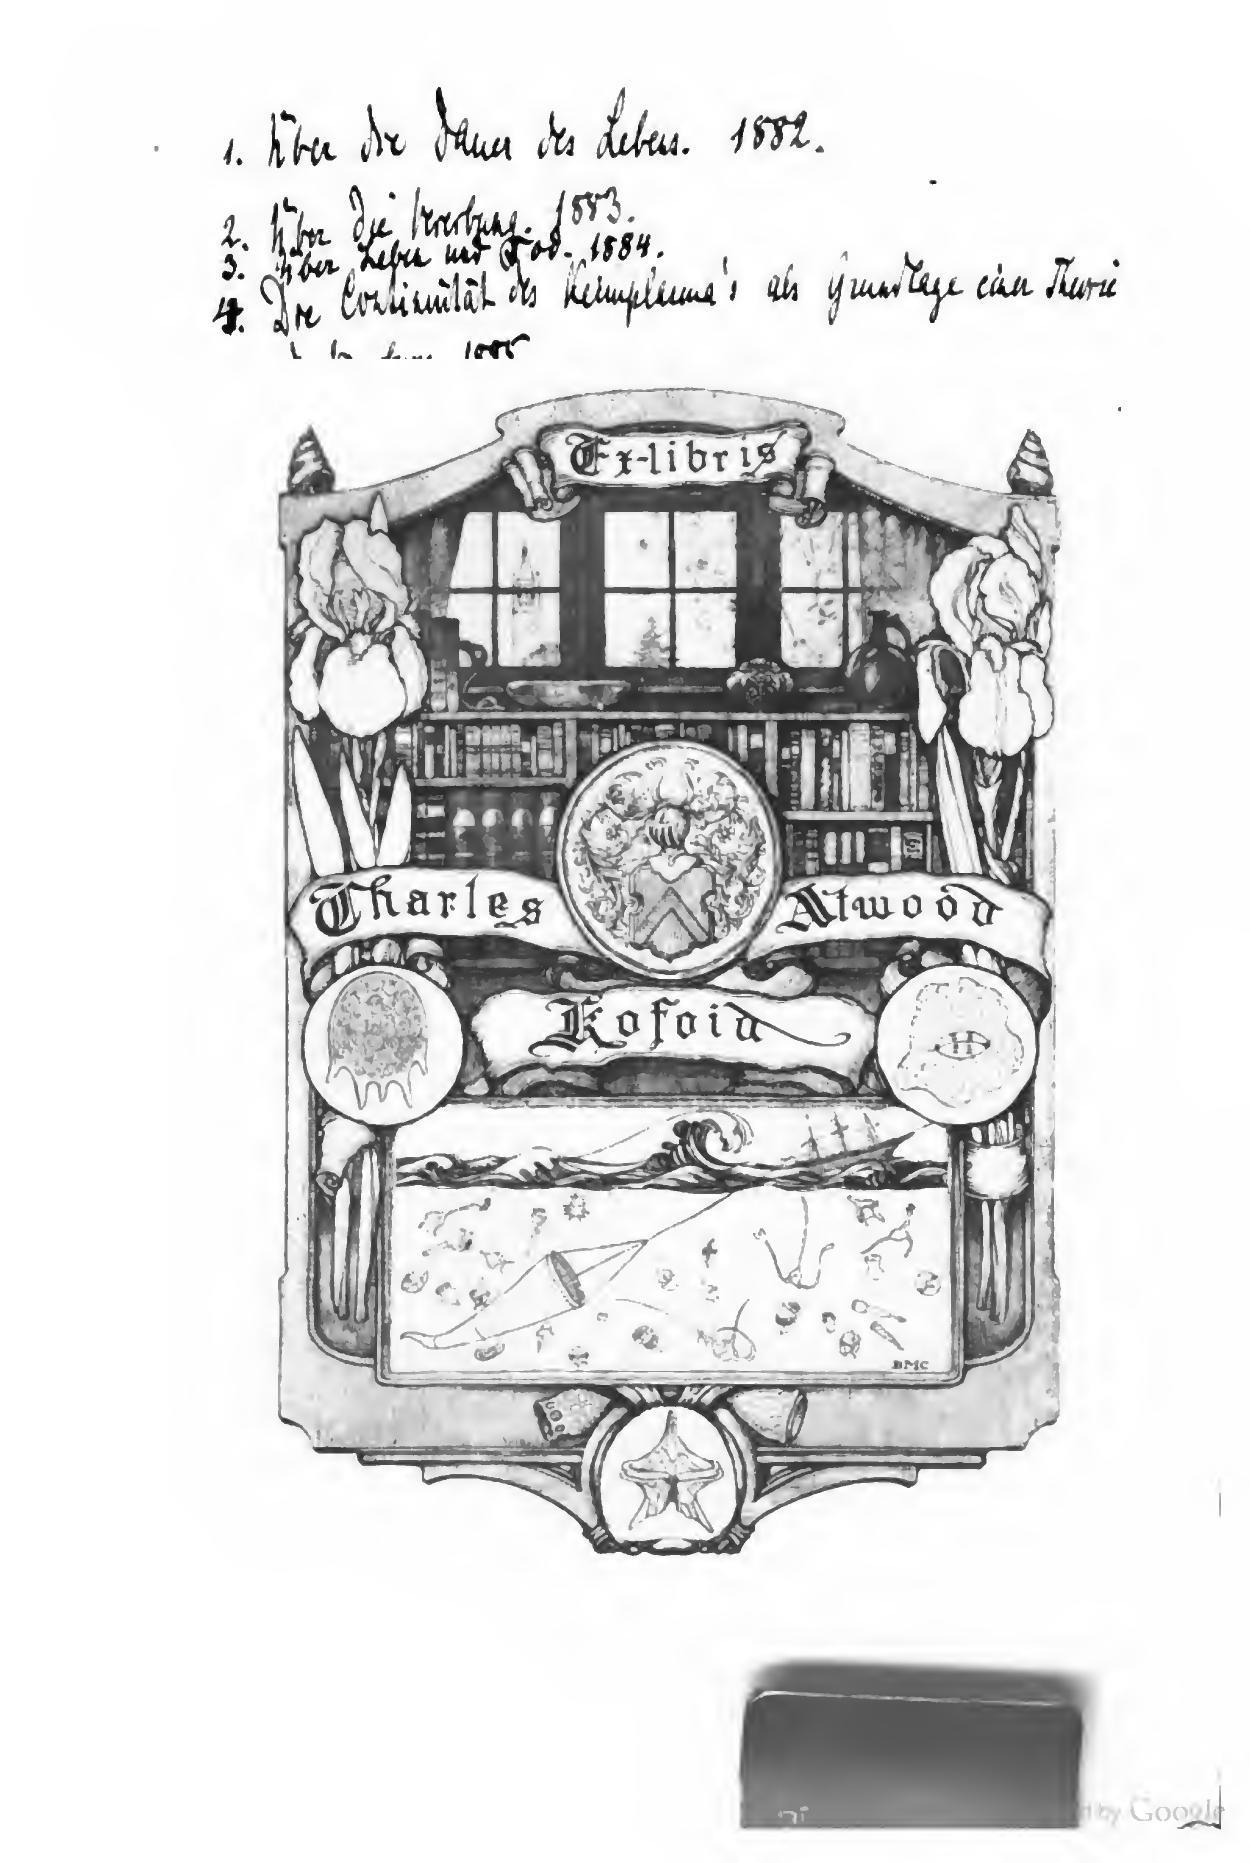 1. Über die Dauer des Lebens. 1882.
2. Über die Vererbung. 1883.
3. Über Leben und Tod. 1884.
4. Die Continuität des Keimplasma's als Grundlage einer Theorie
1885
Ex-libris
Charles Atwood
Kofoid
H
BMC
by Google